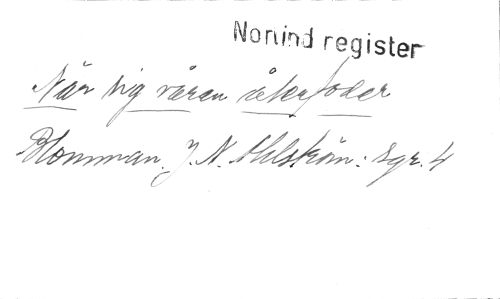 Norlind register
När sig våren återföder
Blomman. J. N. Ahlström: Sgr. 4